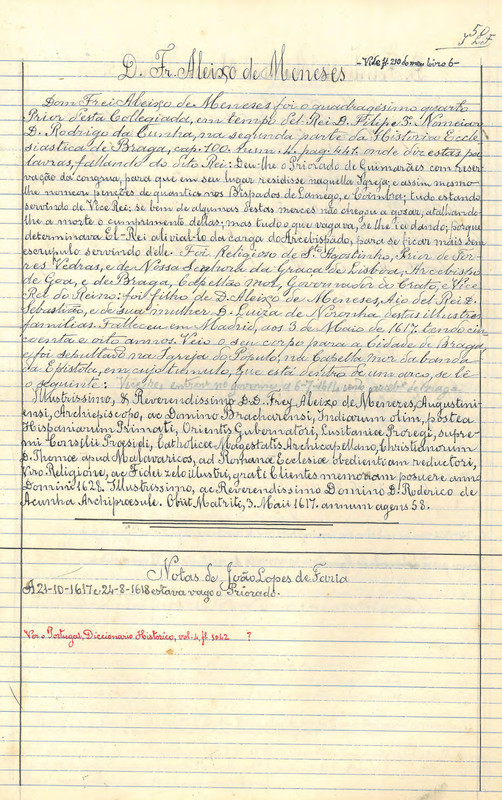 50
D. Fr. Aleixo de Meneses
-Vide fl 210 do meu livro 6-
Dom Frei Aleixo de Meneses foi o quadragesimo quarto
Prior desta Collegiada, em tempo del-Rei D. Filipe 3º. Nomeia-o
D. Rodrigo da Cunha, na segunda parte da Historia Eccle-
siastica de Braga, cap. 100. num. 4. pag. 441. onde diz estas pa-
lavras, fallando do dito Rei: Deu-lhe o Priorado de Guimarães com reser-
vação da congrua, para que em seu lugar residisse naquella Igreja; e assim mesmo
lhe nomeou penções de quantia nos Bispados de Lamego, e Coimbra; tudo estando
servindo de Vice Rei; se bem de algumas destas merces não chegou a gosar, atalhando-
lhe a morte o cumprimento dellas; mas tudo o que vagava, se lhe ia dando; porque
determinava El-Rei alivial-o da carga do Arcebispado, para se ficar mais sem
escrupulo servindo delle. Foi Religioso de Sto. Agostinho, Prior de Tor-
res Vedras, e de Nossa Senhora da Graça de Lisboa, Arcebispo
de Goa, e de Braga, Capellão mor, Governador do Crato, e Vice
Rei do Reino: foi filho de D. Aleixo de Meneses, Aio del-Rei D.
Sebastião, e de sua mulher D. Luiza de Noronha destas illustres
familias. Falleceu em Madrid, aos 3 de Maio de 1617. tendo cin-
coenta e oito annos. Veio o seu corpo para a Cidade de Braga,
e foi sepultado na Igreja do Populo, na Capella mor da banda
da Epistola, em cujo tumulo, que está dentro de um arco, se lê
o seguinte:
Illustrissimo, & Reverendissimo D. D. Frey Aleixo de Menezes, Augustini-
ensi, Archiepiscopo, ac Domino Bracharensi, Indiarum olim, postea
Hispaniarum Primati, Orientis Gubernatori, Lusitaniæ Proregi, supre-
mi Consilii Præsidi, Catholicæ Magestatis Archicapellano, Christianorum
D. Thomæ apud Malavaricos, ad Romanæ Ecclesiæ obedientiam reductori,
Viro Religione, ac Fidei zelo illustri, grati Clientes memoriam posuere anno
Domini 1628. Illustrissimo, ac Reverendissimo Domino D. Roderico de
Acunha Archipræsule. Obiit Matriti, 3. Maii 1617. annum agens 58.
Notas de João Lopes de Faria
A 21-10-1617 e 24-8-1618 estava vago o Priorado.
Ver o Portugal, Diccionario Historico, vol. 4, fl. 1042 ?